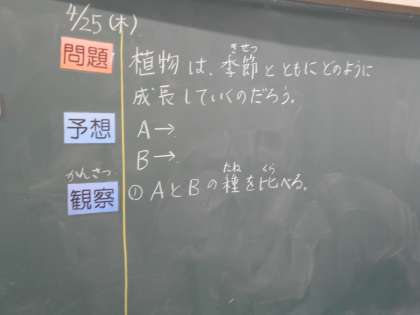 4/25(木)
問題
植物は、季節とともにどのように
きせつ
成長していくのだろう。
予想
A→
B→
かんさつ
観察
①AとBの種を比べる。
たね
くら